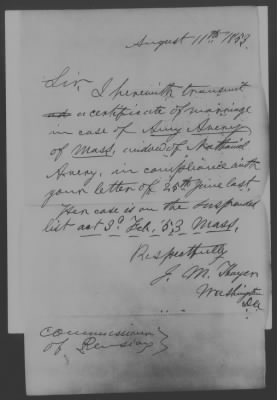 August 11th 1853
Sir, I herewith transmit
a certificate of marriage
in case of Amy Avery
of Mass, widow of Nathaniel
Avery, in compliance with
your letter of 25th June last
Her case is on the suspended
list act 3d Feb, 53 Mass,
Respectfully
J. M. Thayer
Washington
D.C.
Commissioner
of Pensions